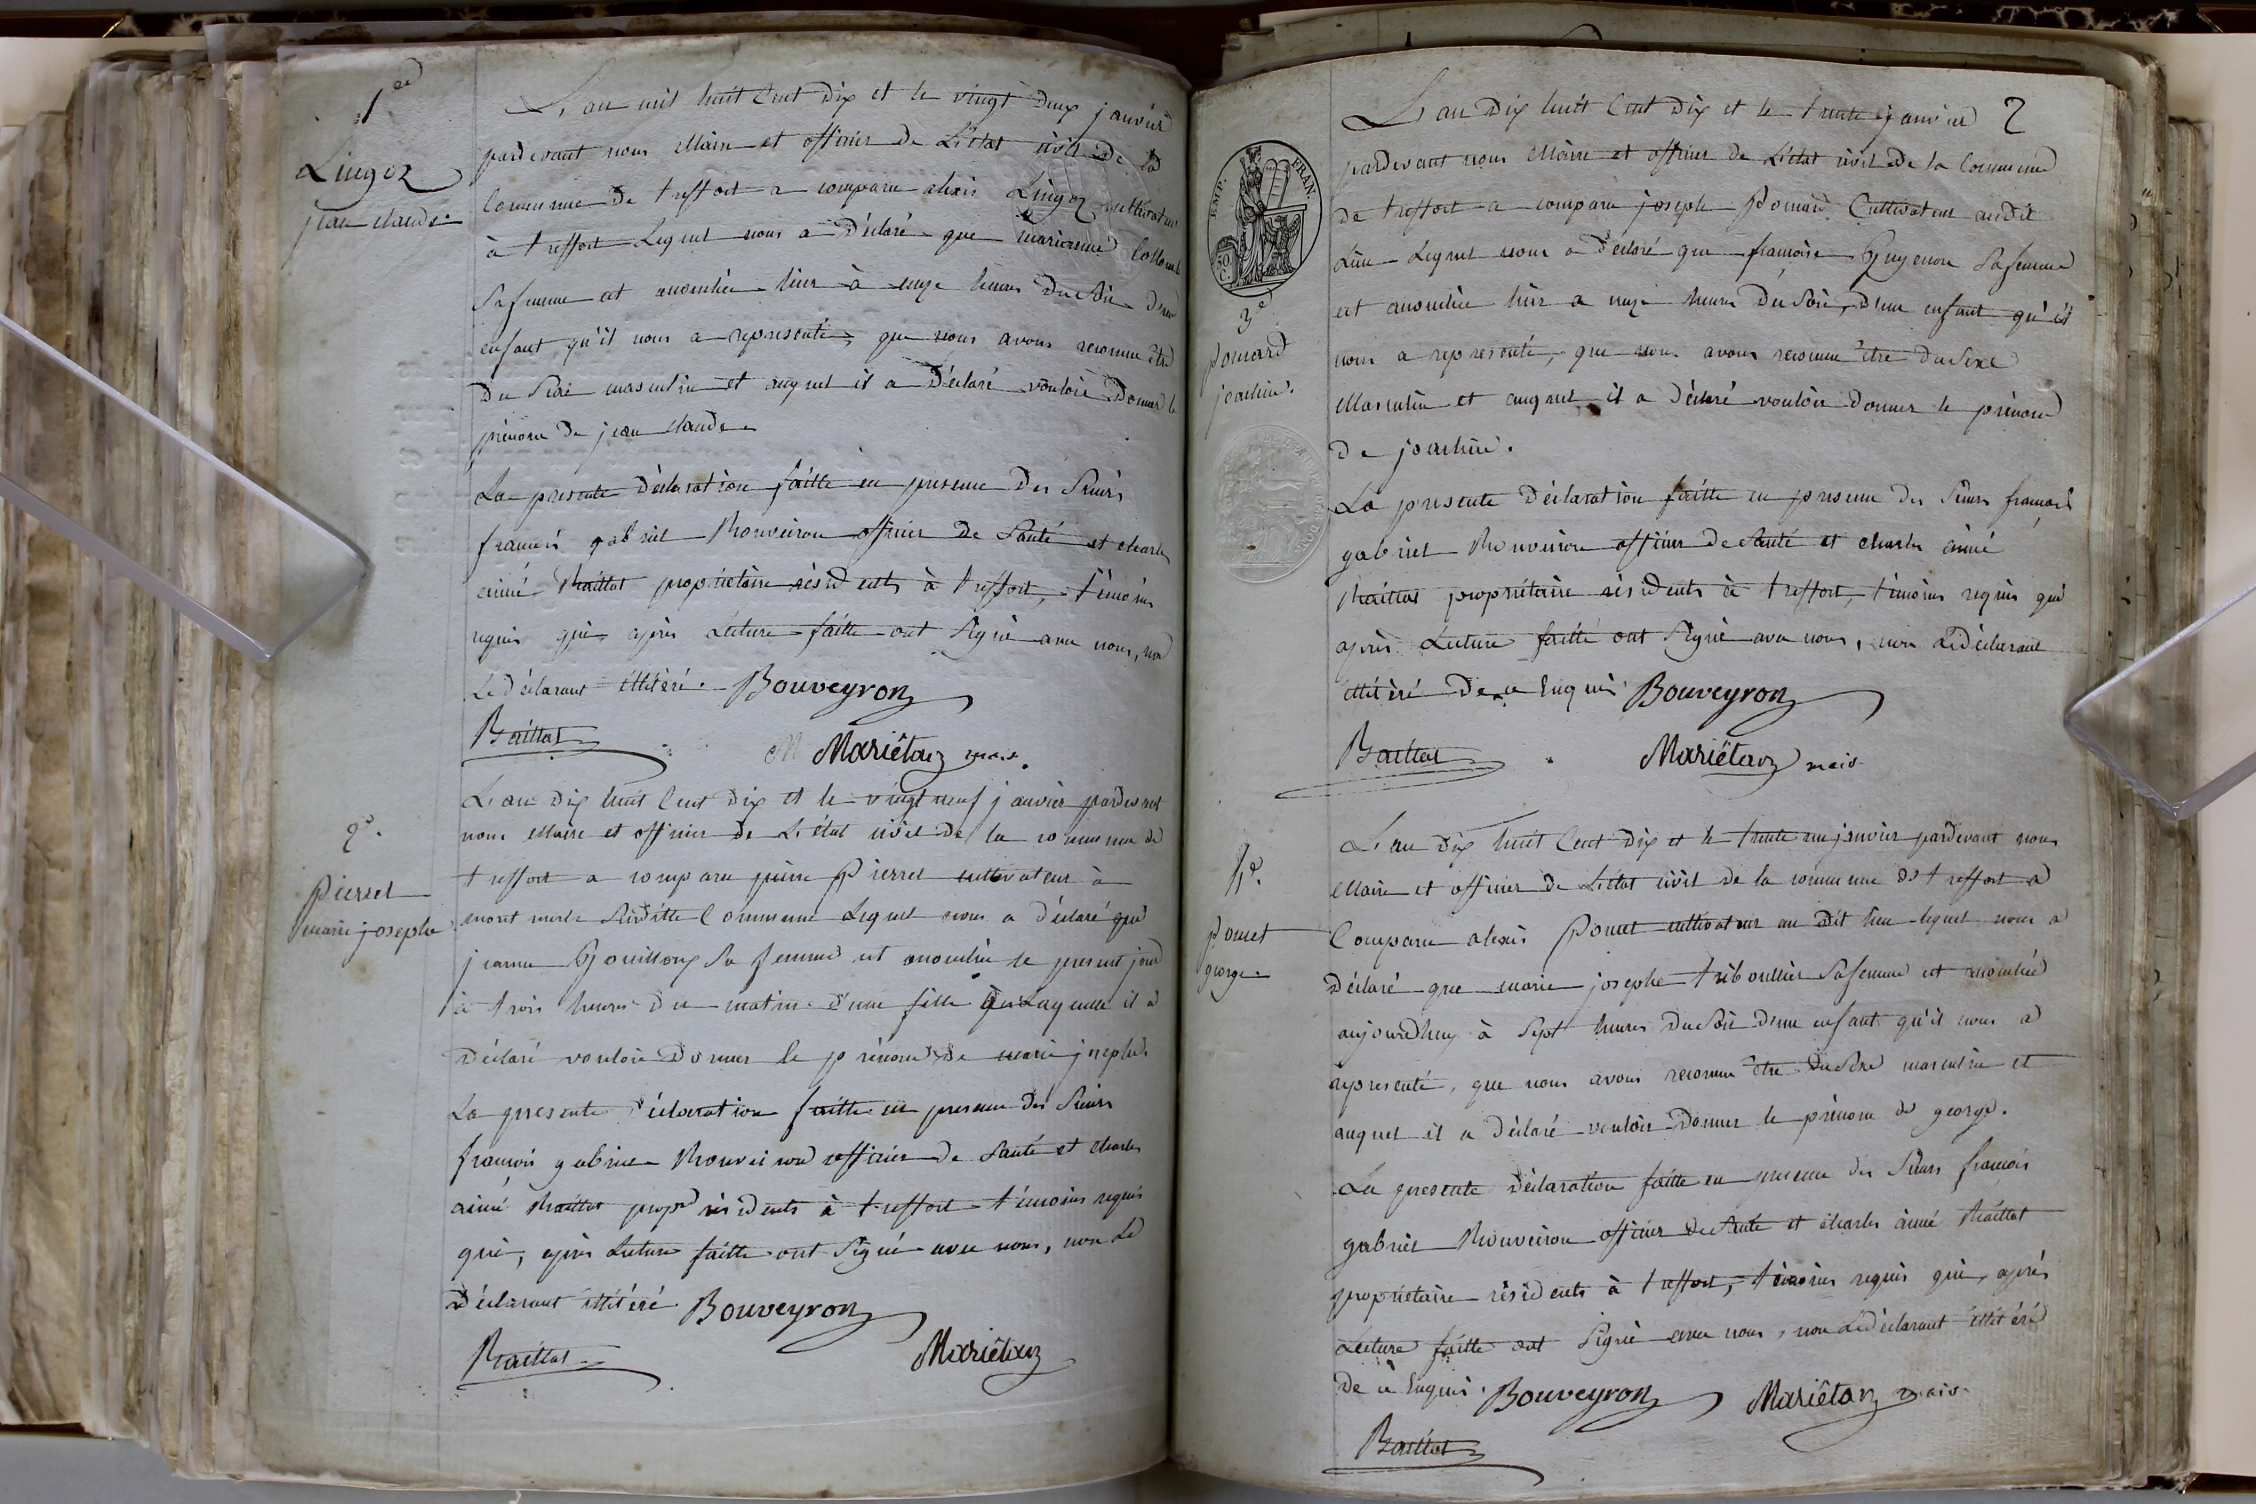 1er
Lingoz
jean claude.
L'an mil huit Cent dix et le vingt deux janvier
pardevant nous Maire et officier de L'état civil de la
Commune de treffort a comparu alexis Lingoz cultivateur
à treffort Lequel nous a déclaré que marianne
Sa femme est accouchée hier à onze heures Du Soir d'un
enfant qu'il nous a représenté, que nous avons reconnu être
Du Sexe masculin et auquel il a déclaré vouloir Donner le
prénom De jean claude.
La presente déclaration faitte en présence des Sieurs
françois gabriel Bouveiron officier de Santé et charles
aimé Baillat propriétaire résidents à treffort, témoins
requis qui, après Lecture faitte ont Signé avec nous, non
Le déclarant illitéré. Bouveyron
Baillat
Mariëtan maire.
2e.
Pierrel
marie josephe
L'an dix huit Cent dix et le vingt neuf janvier pardevant
nous Maire et officier de L'état civil de la commune de
treffort a comparu pierre Pierrel cultivateur à
Susditte Commune Lequel nous a déclaré que
jeanne Gouilloux Sa femme est accouchée le present jour
à trois heures du matin d'une fille à Laquelle il a
Déclaré vouloir Donner le prénom De marie josephe.
La presente déclaration faitte en presence des Sieurs
françois gabriel Bouveiron officier de Santé et charles
aimé Baillat propre résidents à treffort témoins requis
qui, après Lecture faitte ont Signé avec nous, non Le
Déclarant illitéré Bouveyron
Baillat
Mariëtan
2
EMP. FRAN.
50 C.
3e
pomard
joachin.
L'an dix huit Cent dix et le trente janvier
pardevant nous Maire et officier de L'état civil de la Commune
de treffort a comparu joseph Pomard Cultivateur audit
Lieu Lequel nous a déclaré que françoise Guyenon Sa femme
est accouchée hier a onze heures Du Soir, d'un enfant qu'il
nous a representé, que nous avons reconnu être du Sexe
Masculin et auquel il a déclaré vouloir donner le prénom
De joachin.
La presente déclaration faitte en presence des Sieurs françois
gabriel Bouveiron officier de Santé et charles aimé
Baillat propriétaire résidents à treffort, témoins requis qui
après Lecture faitte ont Signé avec nous, non Le déclarant
illitéré De ce Enquis Bouveyron
Baillat
Mariëtan maire
4e.
pomet
george.
L'an dix huit Cent dix et le trente un janvier pardevant nous
Maire et officier de L'état civil de la commune de treffort a
Comparu alexis Pomet cultivateur au dit lieu lequel nous a
Déclaré que marie josephe triboullier Sa femme est accouchée
aujourdhuy à Sept heures du Soir d'un enfant qu'il nous a
représenté, que nous avons reconnu être du Sexe masculin et
auquel il a déclaré vouloir Donner le prénom de george.
La presente déclaration faitte en presence des Sieurs françois
gabriel Bouveiron officier de Santé et charles aimé Baillat
propriétaire résidents à treffort, témoins requis qui, après
Lecture faitte ont Signé avec nous, non Le déclarant illitéré
De ce Enquis. Bouveyron Mariëtan maire
Baillat